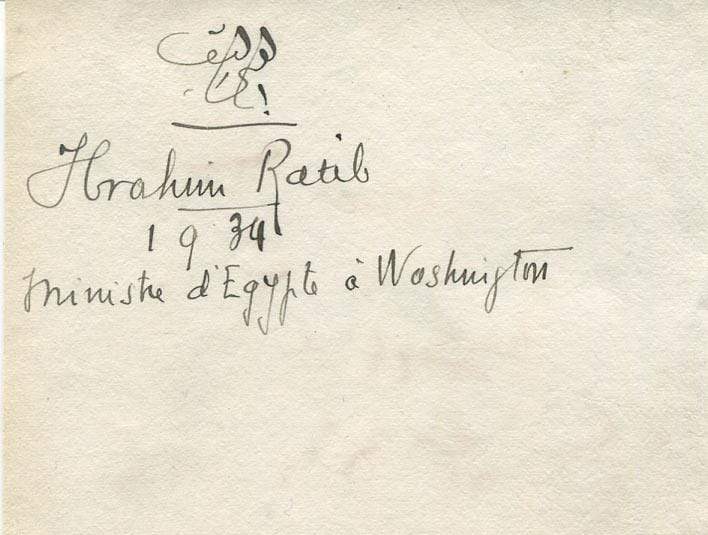 Ibrahim Ratib
1934
Ministre d'Egypte à Washington